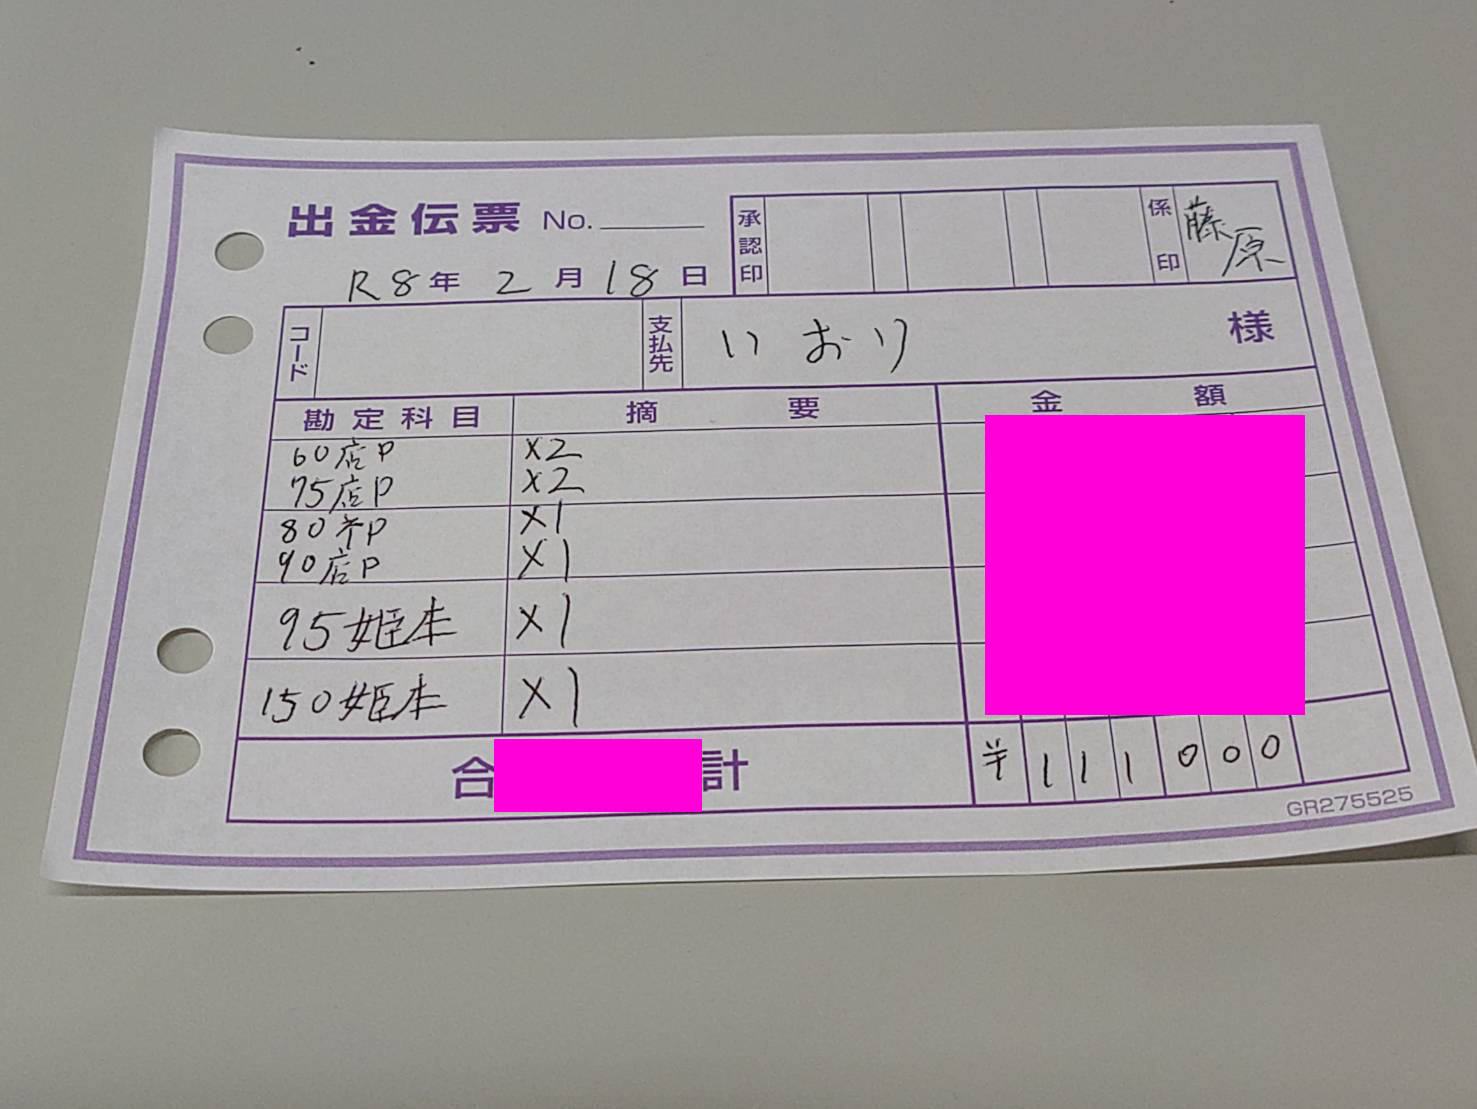 出金伝票 No.
R8年 2月 18日
承認印
係印 藤原
コード
支払先 いおり 様
勘定科目 摘要 金額
60店P ×2
75店P ×2
80ネP ×1
90店P ×1
95姫本 ×1
150姫本 ×1
合計 ¥111000
GR275525